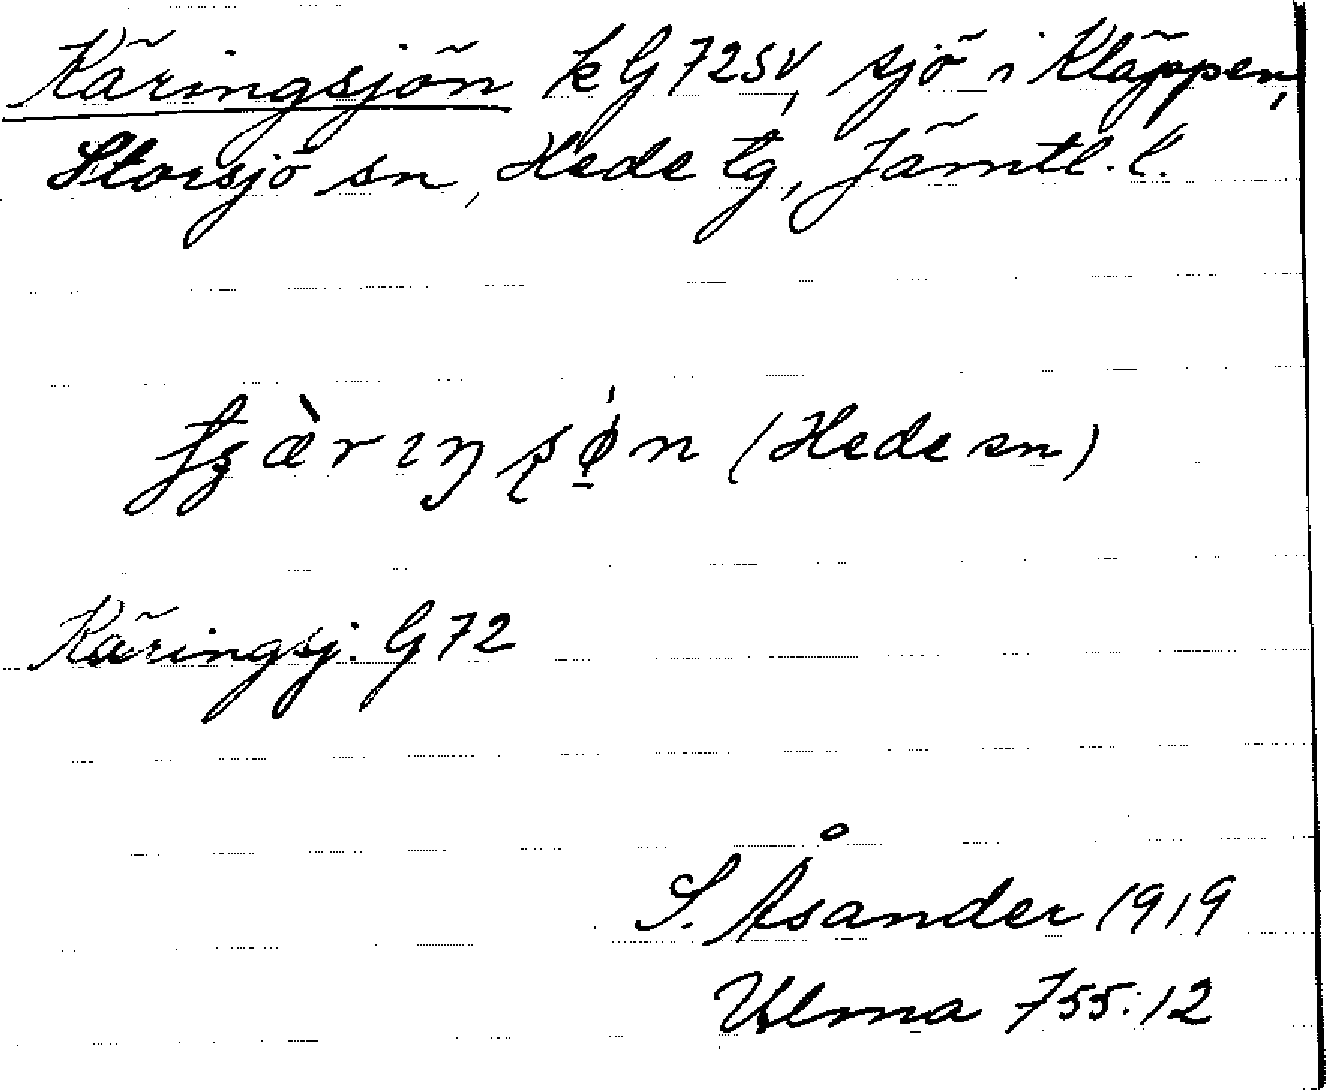 Käringsjön k G 72 SV, sjö i Kläppen,
Storsjö sn, Hede tg, Jämtl. l.
(Hede sn)
Käringsj. G 72
S. Åsander 1919
Ulma 755:12